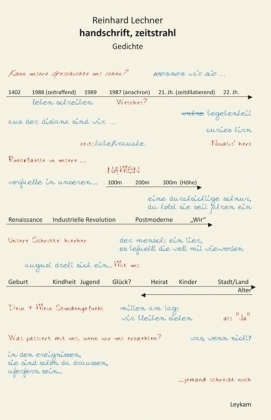 Reinhard Lechner
handschrift, zeitstrahl
Gedichte
Kann unsere Geschichte uns sehen? wessen wir sie ...
1402 1988 (zeitraffend) 1989 1987 (anachron) 21. Jh. (zeitdilatierend) 22. Jh.
leben schreiben Welches?
wahre
aus der distanz sind wir ...
in unsere ...
NAMEN
vorfuelle in unseren... 100m 200m 300m (Höhe)
eine durchsichtige schnur,
du holst sie seit jahren ein
Renaissance Industrielle Revolution Postmoderne „Wir“
Unsere Schritte hierher der mensch: ein tier,
es befuellt die welt mit
august dreht sich ein... Mit uns
Geburt Kindheit Jugend Glück? Heirat Kinder Stadt/Land
Alter
Dein + Mein Stundengefuehl millen am tag:
wir bleiben stehen als "Du"
Was passiert mit uns, wenn wir uns erzaehlen? was, wenn nicht?
in den ereignissen,
sie sind schon da draussen,
uferfern sein..
...jemand schreibt noch
Leykam